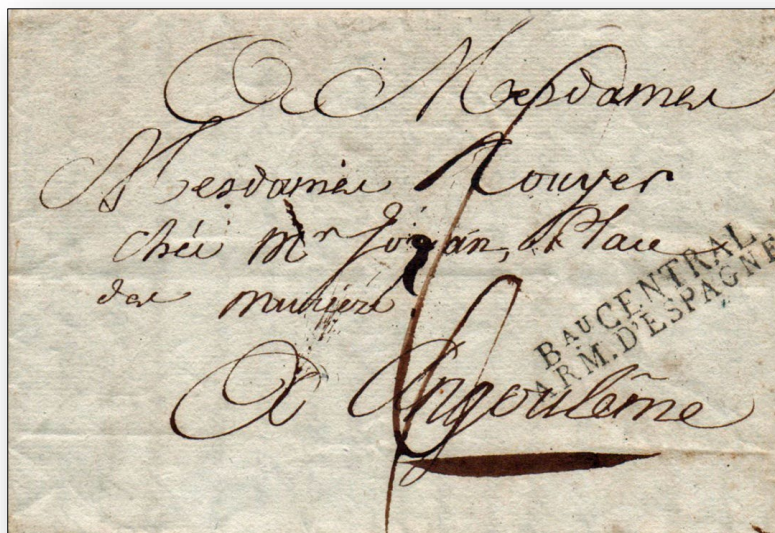 A Mesdames
Mesdames Rouyer
chéz Mr Joran, Place
des muriers
A Angoulême
6
BAU CENTRAL
ARM. D'ESPAGNE